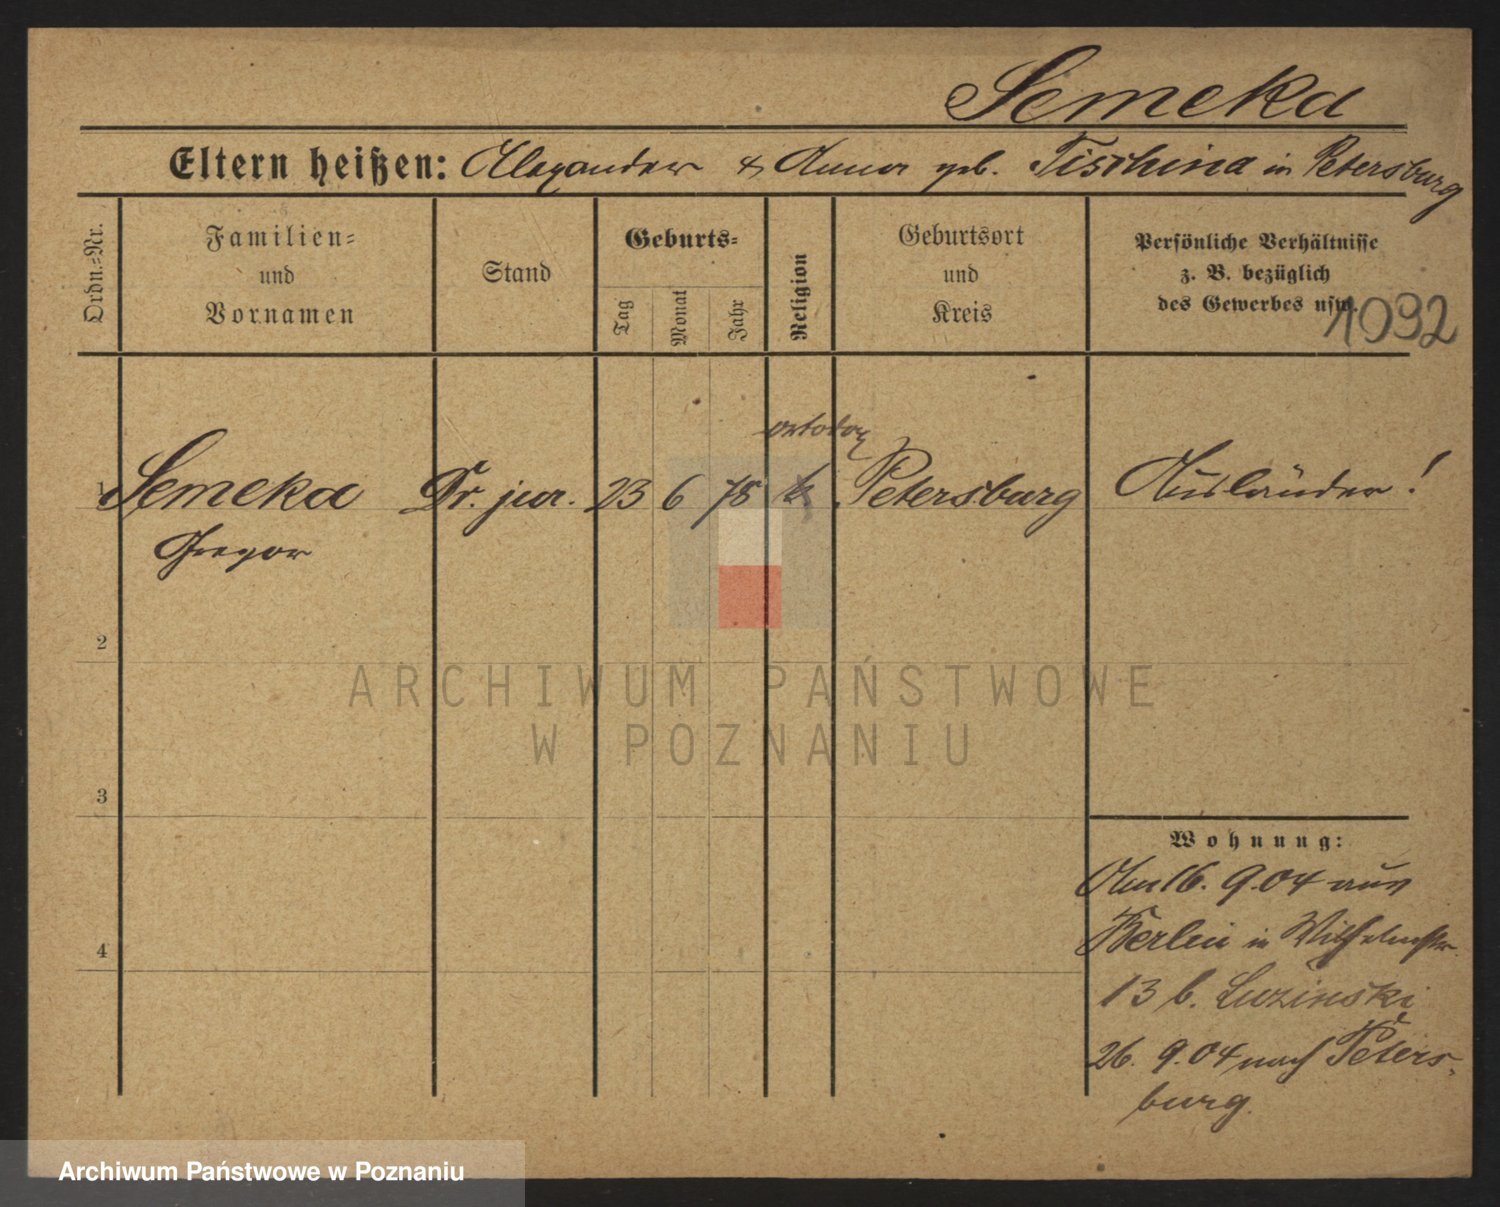 Semeka
Eltern heißen: Alexander & Anna geb. Tischina in Petersburg
Ordn.-Nr.
Familien-
und
Vornamen
Stand
Geburts-
Tag
Monat
Jahr
Religion
Geburtsort
und
Kreis
Persönliche Verhältnisse
z. B. bezüglich
des Gewerbes usw.
1092
ortodox
1 Semeka Dr. jur. 23 6 78 k Petersburg Ausländer!
Gregor
2
3
4
Wohnung:
Am 16. 9.04 aus
Berlin in Wilhelmstr.
13 b. Luzinski
26. 9.04 nach Peters-
burg.
ARCHIWUM PAŃSTWOWE
W POZNANIU
Archiwum Państwowe w Poznaniu